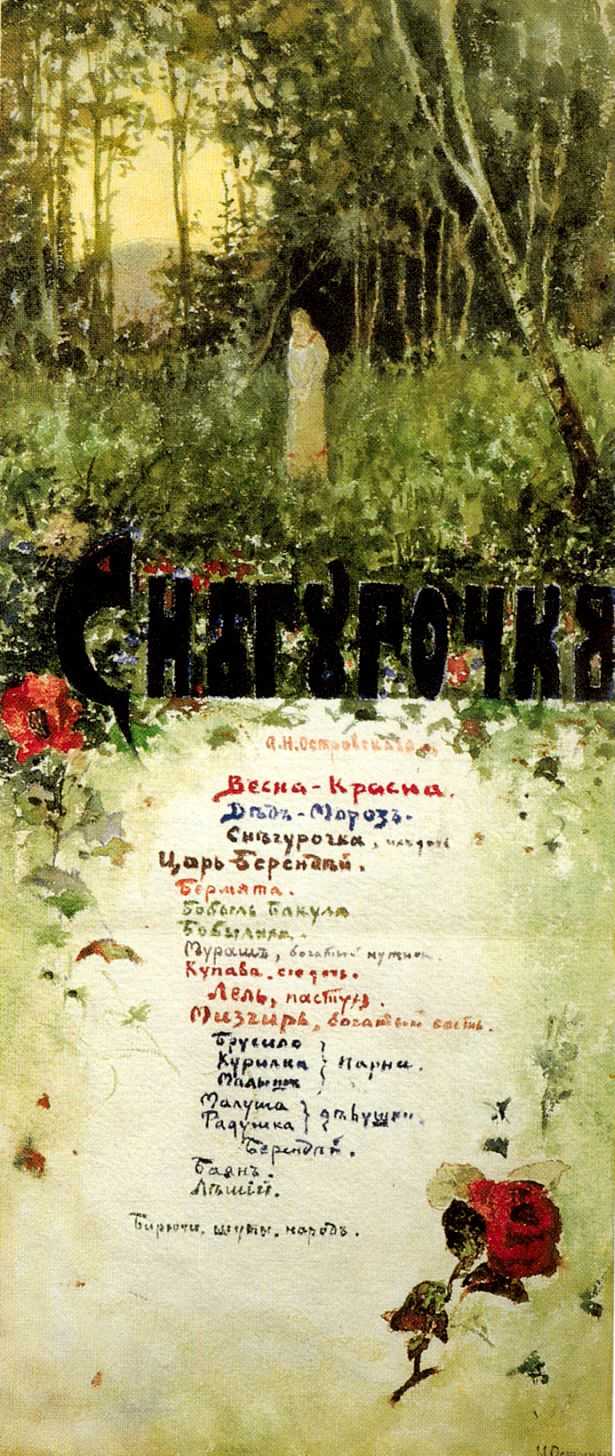 Снѣгурочка
А.Н.Островскаго.
Весна-Красна.
Дѣдъ-Морозъ.
Снѣгурочка, ихъ дочь
Царь Берендѣй.
Бермята.
Бобыль Бакула
Бобылиха.
Мурашъ, богатый мужик.
Купава. его дочь.
Лель, пастухъ.
Мизгирь, богатый гость.
Брусило
Курилка } парни.
Малышъ
Малуша
Радушка } дѣвушки.
Берендѣй.
Баянъ.
Лѣшій.
Бирючи, шуты, народъ.